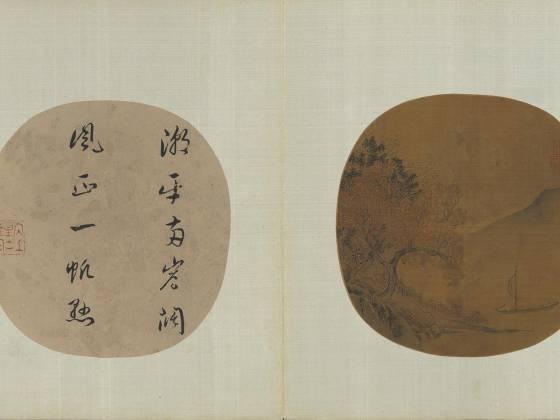 潮平兩岸闊
風正一帆懸